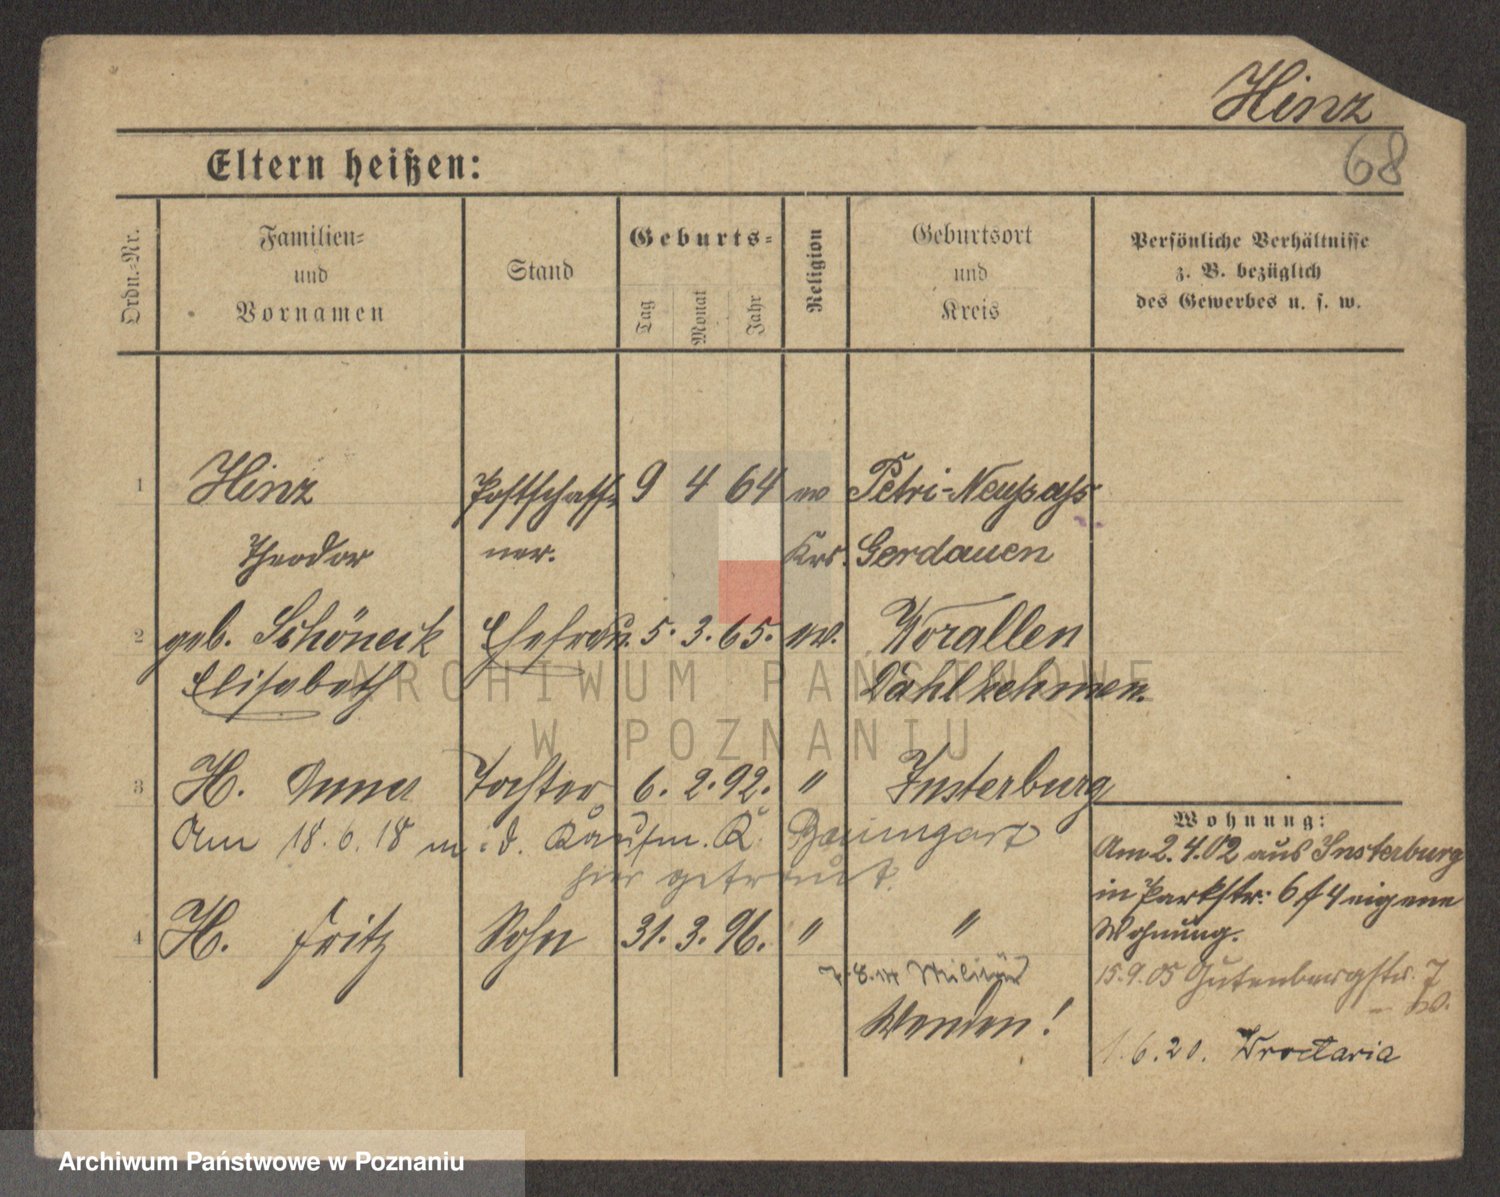 Hinz
68
Eltern heißen:
Ordn.-Nr.
Familien-
und
Vornamen
Stand
Geburts-
Tag
Monat
Jahr
Religion
Geburtsort
und
Kreis
Persönliche Verhältnisse
z. B. bezüglich
des Gewerbes u. s. w.
1 Hinz Postschaff- 9 4 64 ev Petri-
Theodor ner. Krs. Gerdauen
2 geb. Schöneick Ehefrau 5. 3. 65. ev. Worallen
Elisabeth
ARCHIWUM PAŃSTWOWE
W POZNANIU
3 H. Anna Tochter 6. 2. 92. " Insterburg
Am 18.6.18 m. d. Kaufm. K. Baumgart
hier getraut.
4 H. Fritz Sohn 31. 3. 96. " "
Militär
Wenden!
Wohnung:
Am 2.4.02 aus Insterburg
in Parkstr. 6 eigene
Wohnung.
15.9.05 Gutenbergstr. 7
1.6.20.
Archiwum Państwowe w Poznaniu